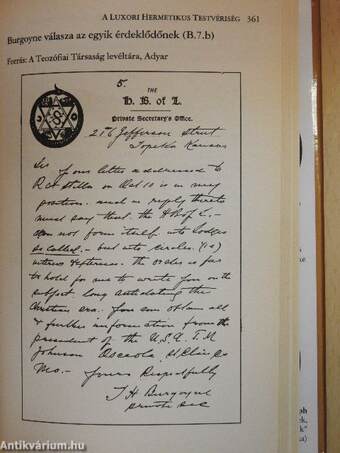 A LUXORI HERMETIKUS TESTVÉRISÉG 361
Burgoyne válasza az egyik érdeklődőnek (B.7.b)
Forrás: A Teozófiai Társaság levéltára, Adyar
5.
THE
H. B. of L.
Private Secretary's Office.
216 Jefferson Street
Topeka Kansas
Sir your letter addressed to
on Oct 10 is in my
must in reply thereto
must say that the H B of L.
not form itself into lodges
so called, but into circles. (i e)
The is far
to hold for me to write you on the
subject. long antedating the
Christian era. You can obtain all
& further information from the
president of the U.S.A. T. M
Johnson Osceola, St Clair Co
Mo. Yours Respectfully
T H Burgoyne
private sec
Antikvárium.hu